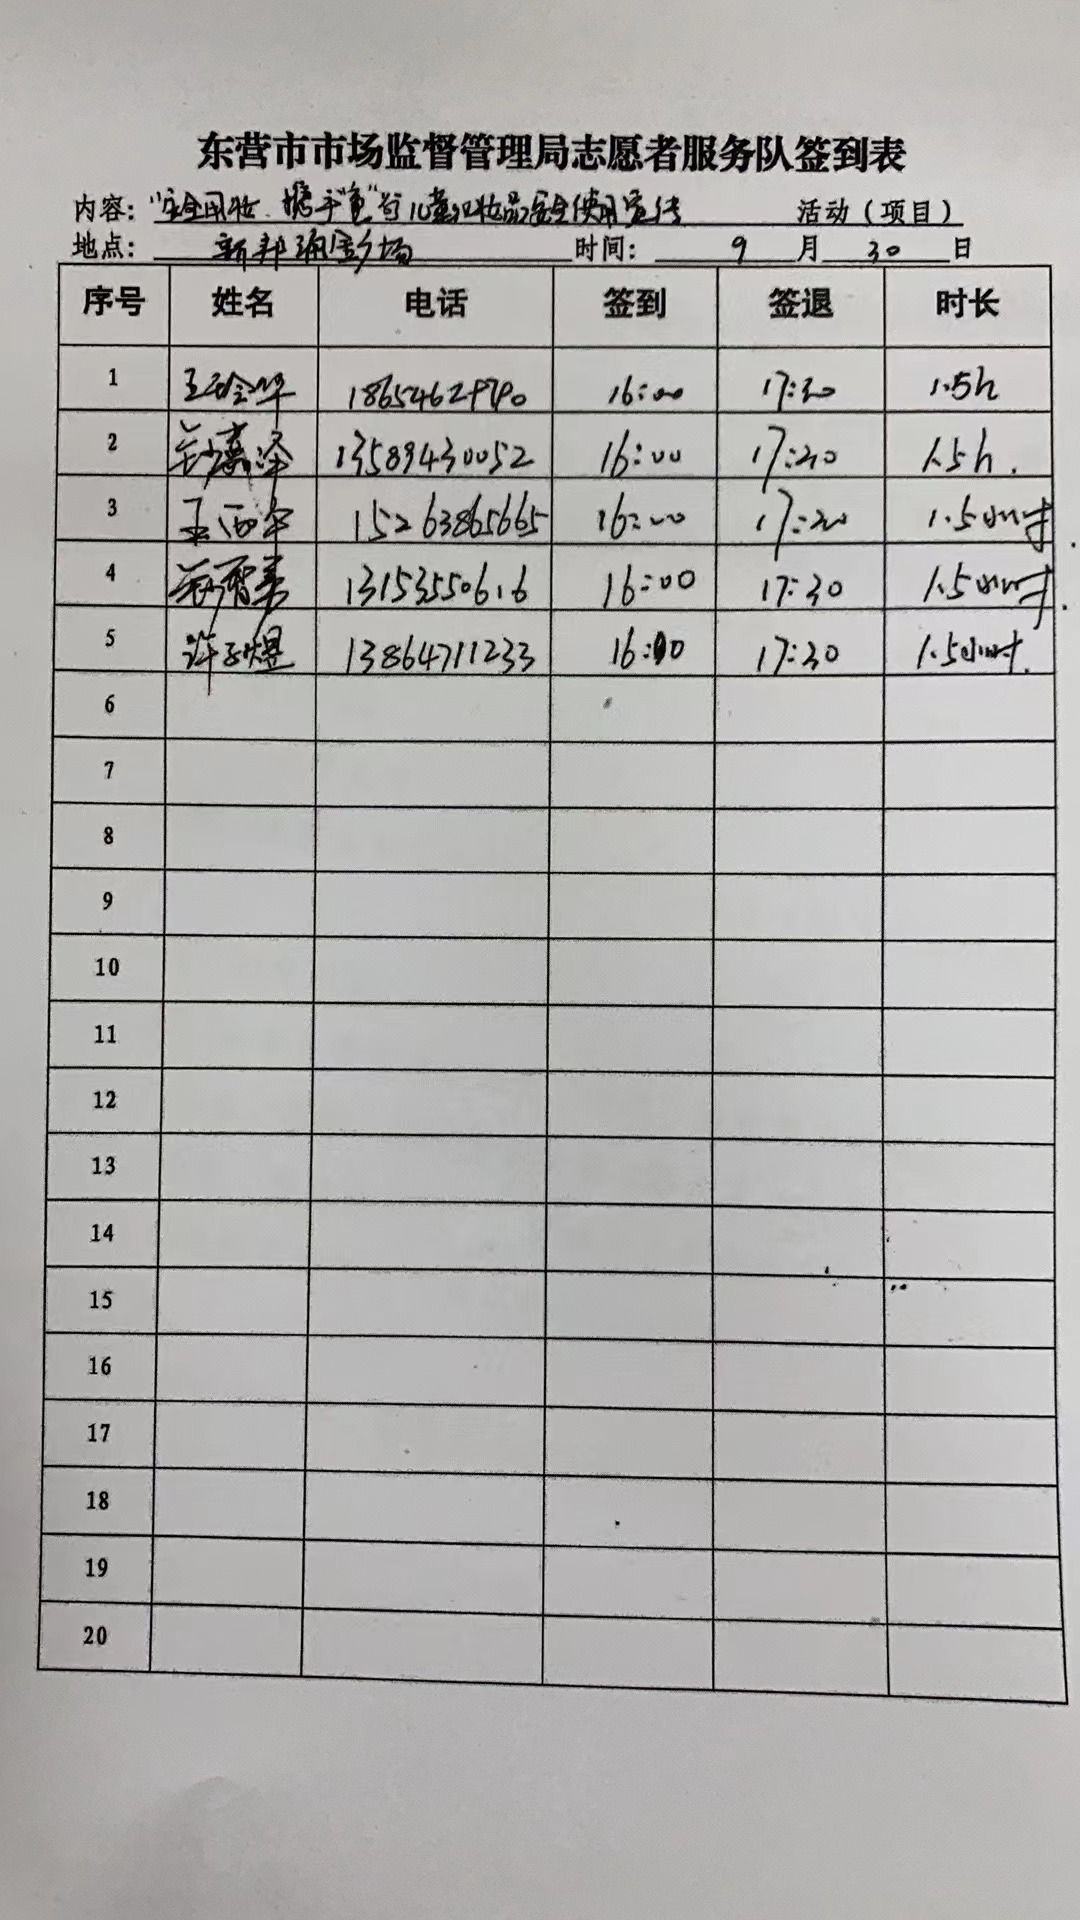 东营市市场监督管理局志愿者服务队签到表
内容：“安全用妆，携手“童”行儿童化妆品安全使用宣传 活动（项目）
地点： 新邦 广场 时间： 9 月 30 日
序号 姓名 电话 签到 签退 时长
1 王 华 16:00 17:30 1.5h
2 嘉泽 13589430052 16:00 17:30 1.5h.
3 王 15263865665 16:00 17:30 1.5小时.
4 13153550616 16:00 17:30 1.5小时.
5 许子煜 13864711233 16:00 17:30 1.5小时.
6
7
8
9
10
11
12
13
14
15
16
17
18
19
20